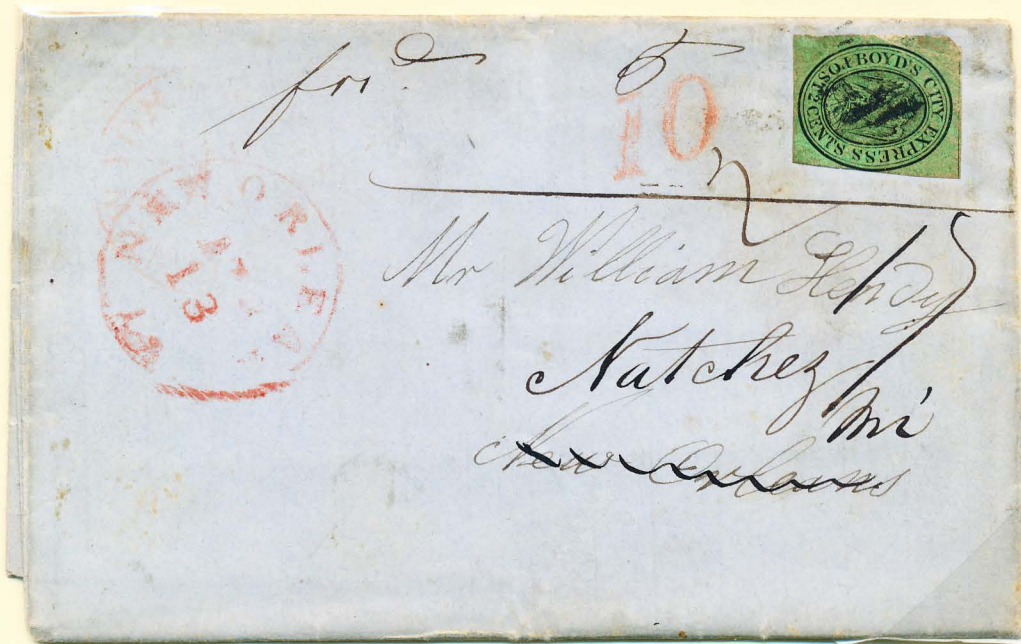 for.d 5
10
BOYD'S CITY EXPRESS POST. 2 CENTS
NEW ORLEA
13
Mr William Hendy
Natchez
Mi
New Orleans